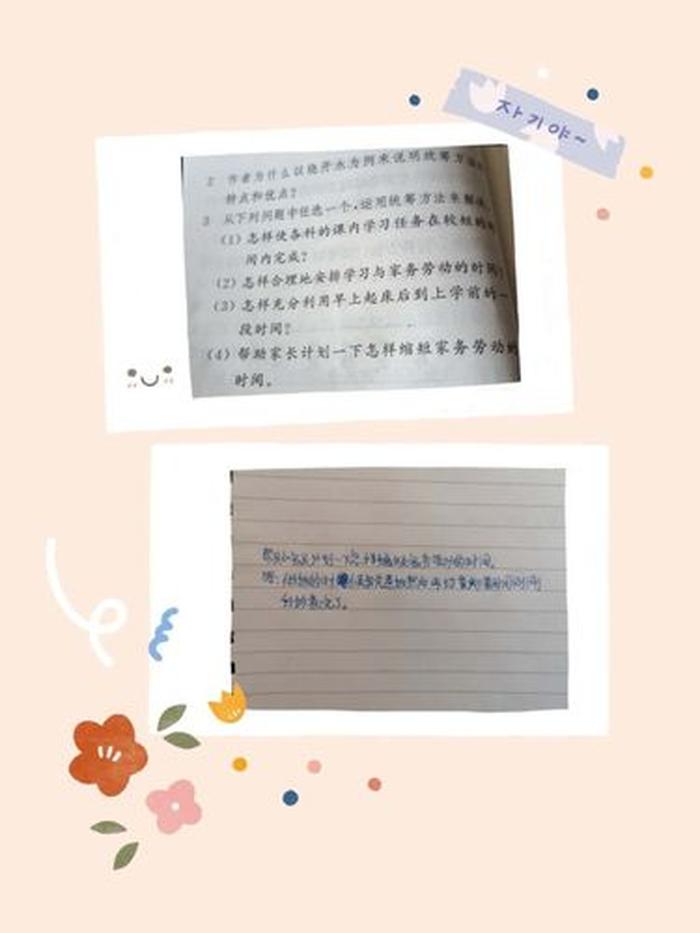 자기야~
2 作者为什么以烧开水为例来说明统筹方法的
特点和优点？
3 从下列问题中任选一个，运用统筹方法来解决。
（1）怎样使各科的课内学习任务在较短的时
间内完成？
（2）怎样合理地安排学习与家务劳动的时间？
（3）怎样充分利用早上起床后到上学前的一
段时间？
（4）帮助家长计划一下怎样缩短家务劳动的
时间。
帮助家长计划一下怎样缩短家务劳动的时间。